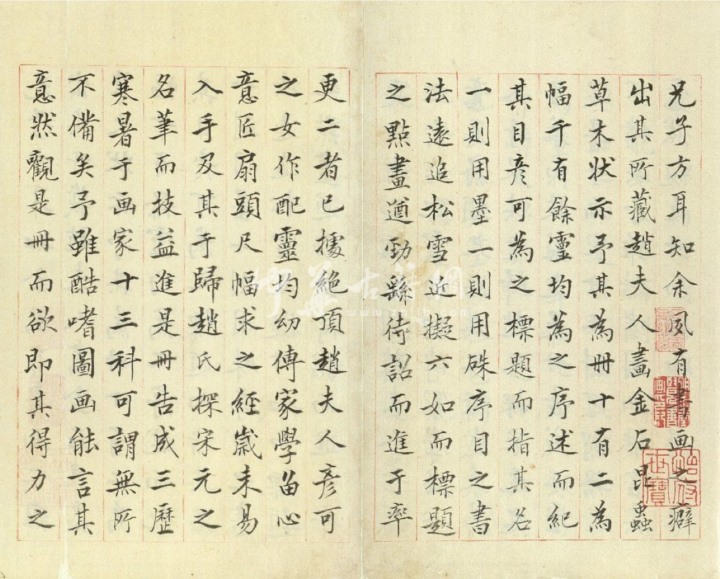 兄子方耳知余夙有書画之癖
出其所藏趙夫人畫金石昆蟲
草木状示予其為冊十有二為
幅千有餘靈均為之序述而紀
其目彦可為之標題而指其名
一則用墨一則用硃序目之書
法遠追松雪近擬六如而標題
之點畫遒勁繇待詔而進于率
更二者已據絶頂趙夫人彦可
之女作配靈均幼傳家學留心
意匠扇頭尺幅求之經歲未易
入手及其于歸趙氏探宋元之
名筆而技益進是冊告成三歷
寒暑于画家十三科可謂無所
不備矣予雖酷嗜圖画能言其
意然觀是冊而欲即其得力之